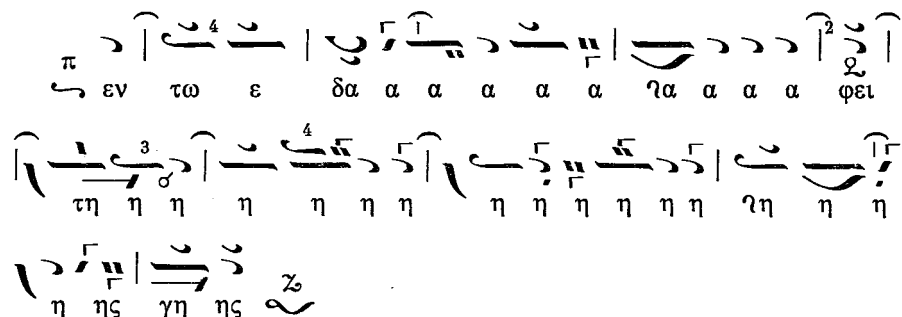 4 1 2
π εν τω ε δα α α α α α ʅα α α α φει
3 4
τη η η η η η η η η η η η η ʅη η η
η ης γη ης Ζ